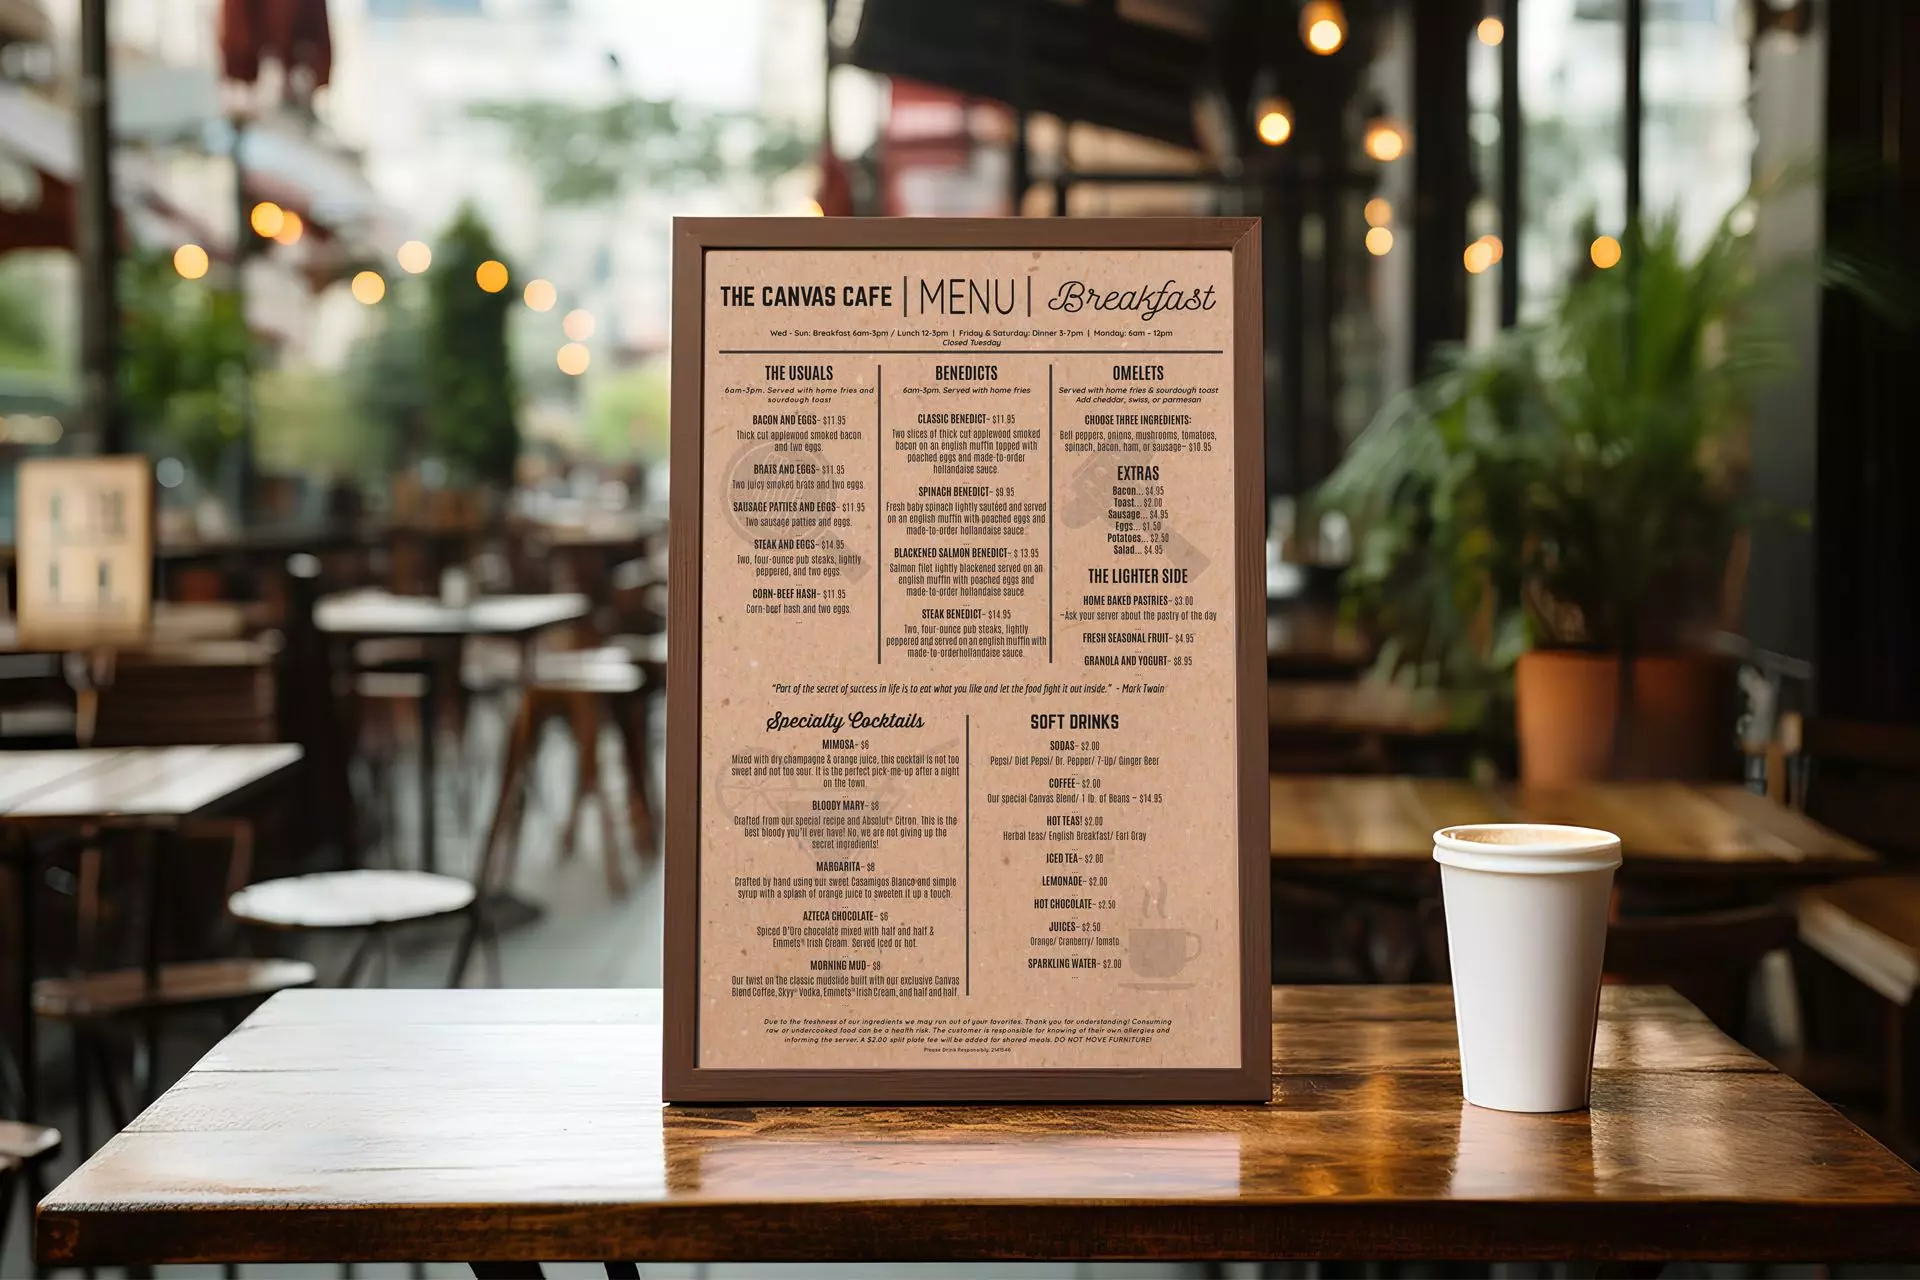 THE CANVAS CAFE | MENU | Breakfast
Wed - Sun: Breakfast 6am-3pm / Lunch 12-3pm | Friday & Saturday: Dinner 3-7pm | Monday: 6am - 12pm
Closed Tuesday
THE USUALS
6am-3pm. Served with home fries and
sourdough toast
BACON AND EGGS- $11.95
Thick cut applewood smoked bacon
and two eggs.
...
BRATS AND EGGS- $11.95
Two juicy smoked brats and two eggs.
...
SAUSAGE PATTIES AND EGGS- $11.95
Two sausage patties and eggs.
...
STEAK AND EGGS- $14.95
Two, four-ounce pub steaks, lightly
peppered, and two eggs.
...
CORN-BEEF HASH- $11.95
Corn-beef hash and two eggs.
...
BENEDICTS
6am-3pm. Served with home fries
CLASSIC BENEDICT- $11.95
Two slices of thick cut applewood smoked
bacon on an english muffin topped with
poached eggs and made-to-order
hollandaise sauce.
...
SPINACH BENEDICT- $9.95
Fresh baby spinach lightly sautéed and served
on an english muffin with poached eggs and
made-to-order hollandaise sauce.
...
BLACKENED SALMON BENEDICT- $ 13.95
Salmon filet lightly blackened served on an
english muffin with poached eggs and
made-to-order hollandaise sauce.
...
STEAK BENEDICT- $14.95
Two, four-ounce pub steaks, lightly
peppered and served on an english muffin with
made-to-orderhollandaise sauce.
OMELETS
Served with home fries & sourdough toast
Add cheddar, swiss, or parmesan
CHOOSE THREE INGREDIENTS:
Bell peppers, onions, mushrooms, tomatoes,
spinach, bacon, ham, or sausage- $10.95
EXTRAS
Bacon... $4.95
Toast... $2.00
Sausage... $4.95
Eggs... $1.50
Potatoes... $2.50
Salad... $4.95
THE LIGHTER SIDE
HOME BAKED PASTRIES- $3.00
-Ask your server about the pastry of the day
...
FRESH SEASONAL FRUIT- $4.95
...
GRANOLA AND YOGURT- $8.95
...
"Part of the secret of success in life is to eat what you like and let the food fight it out inside." - Mark Twain
Specialty Cocktails
MIMOSA- $6
Mixed with dry champagne & orange juice, this cocktail is not too
sweet and not too sour. It is the perfect pick-me-up after a night
on the town.
...
BLOODY MARY- $8
Crafted from our special recipe and Absolut® Citron. This is the
best bloody you'll ever have! No, we are not giving up the
secret ingredients!
...
MARGARITA- $8
Crafted by hand using our sweet Casamigos Blanco and simple
syrup with a splash of orange juice to sweeten it up a touch.
...
AZTECA CHOCOLATE- $6
Spiced D'Oro chocolate mixed with half and half &
Emmets® Irish Cream. Served iced or hot.
...
MORNING MUD- $8
Our twist on the classic mudslide built with our exclusive Canvas
Blend Coffee, Skyy® Vodka, Emmets® Irish Cream, and half and half.
...
SOFT DRINKS
SODAS- $2.00
Pepsi/ Diet Pepsi/ Dr. Pepper/ 7-Up/ Ginger Beer
...
COFFEE- $2.00
Our special Canvas Blend/ 1 lb. of Beans - $14.95
...
HOT TEAS! $2.00
Herbal teas/ English Breakfast/ Earl Gray
...
ICED TEA- $2.00
...
LEMONADE- $2.00
...
HOT CHOCOLATE- $2.50
...
JUICES- $2.50
Orange/ Cranberry/ Tomato
...
SPARKLING WATER- $2.00
...
Due to the freshness of our ingredients we may run out of your favorites. Thank you for understanding! Consuming
raw or undercooked food can be a health risk. The customer is responsible for knowing of their own allergies and
informing the server. A $2.00 split plate fee will be added for shared meals. DO NOT MOVE FURNITURE!
Please Drink Responsibly. 2141546